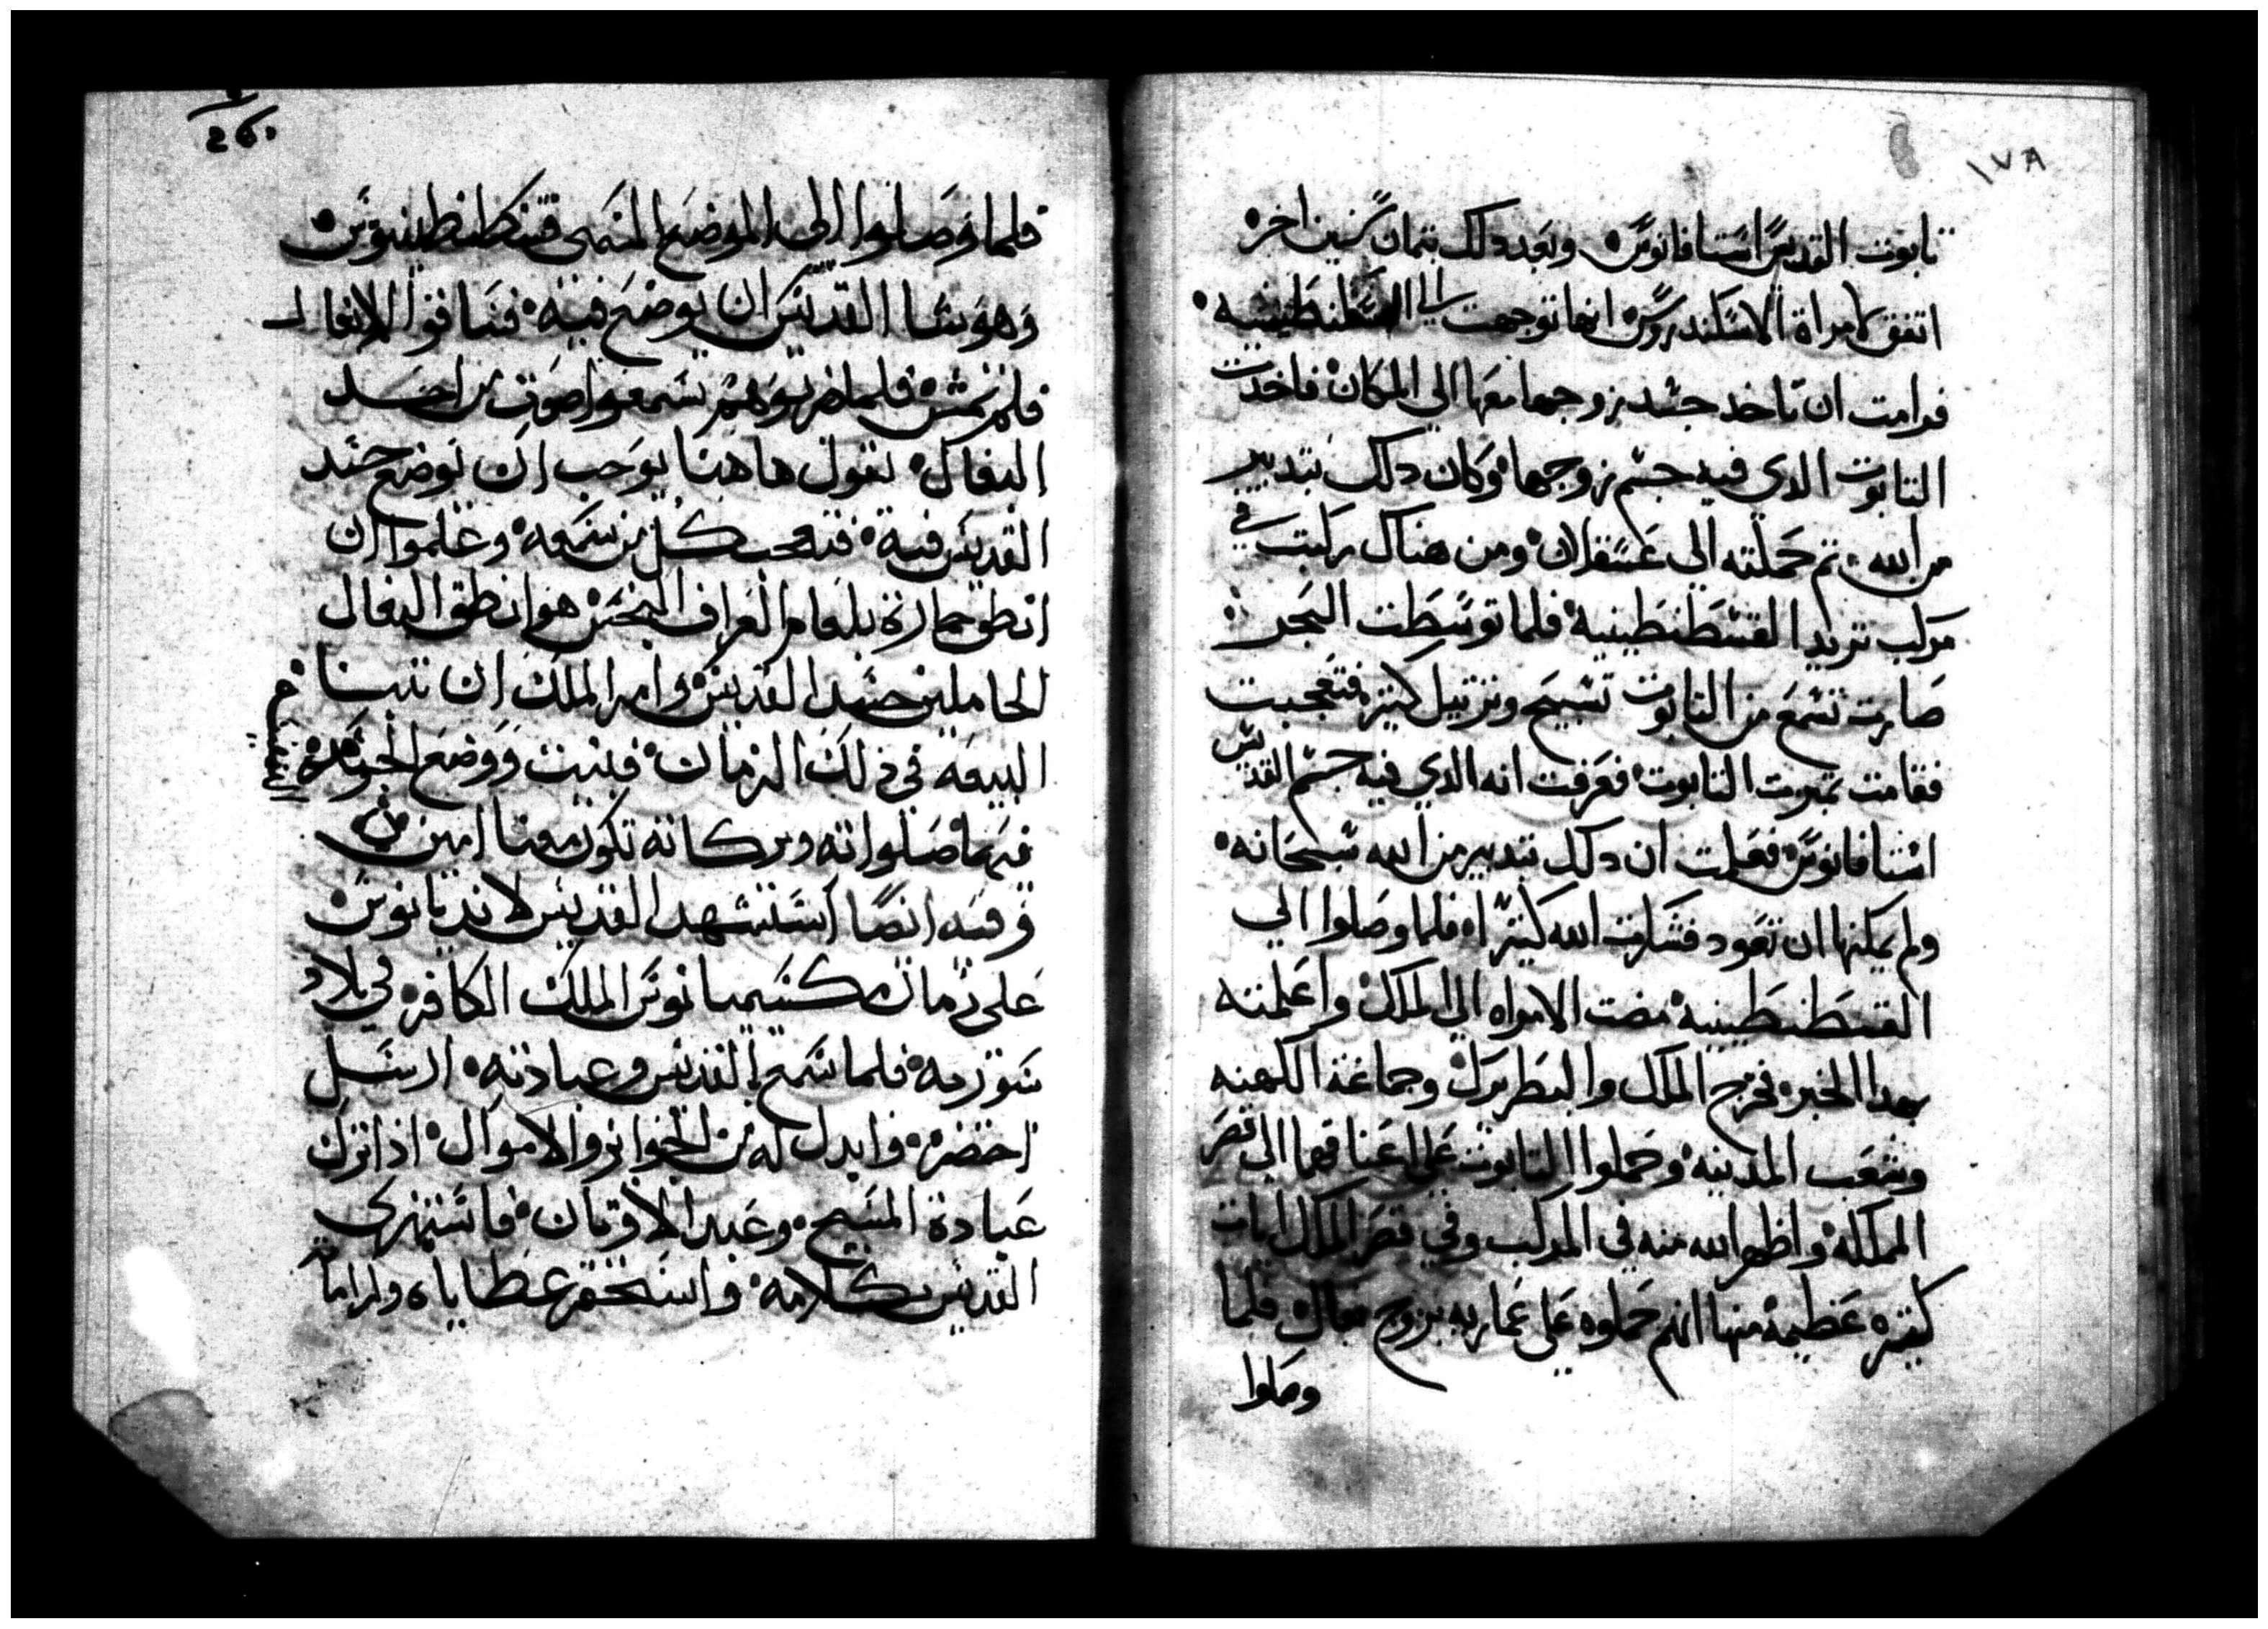 ١٧٨
تابوت القديس استافانوس وبعد دلك بتمان سنين اخره
اتفق لامراة الاسكندروس انها توجهت الي القسطنطينيه
فرامت ان تاخد جسد زوجها معها الي المكان فاخدت
التابوت الدي فيه جسم زوجها وكان دلك بتدبير
من الله تم حملته الي عسقلان ومن هناك ركبت في
مركب تريد القسطنطينية فلما توسطت البحر
صارت تسمع من التابوت تسبيح وترتيل كتيره فتعجبت
فقامت تميزت التابوت فعرفت انه الدي فيه جسم القديس
استافانوس فعلمت ان دلك تبدبير من الله سبحانه
ولم يمكنها ان تعود فشكرت الله كتيرا فلما وصلوا الي
القسطنطينية مضت الامراه الي الملك واعلمته
بهدا الخبر فخرج الملك والبطريرك وجماعة الكهنه
وشعب المدينه وحملوا التابوت علي اعناقهما الي قصر
المملكة واظهر الله منه في المركب وفي قصر الملك ايات
كتيره عظيمة منها انهم حملوه علي عماريه بزوج بغال فلما
وصلوا
فلما وصلوا الى الموضع المسمى قسطنطينوس
وهو يشا القديس ان يوضع فيه فساقوا الابغال
فلم تمش فلما ضربوهم سمعوا صوت من احد
البغال تقول هاهنا يوجب ان توضع جسد
القديس فية فتعجب كل من سمعه وعلموا ان
انطق حمارة بلعام العراف النجس هو انطق البغال
الحاملين جسد القديس وامر الملك ان تبنا
البيعه في ذلك الزمان فبنيت ووضع الجوهرة
فيها صلواته وبركاته تكون معنا امين
وفيه ايضا استشهد القديس لانديانوس
على زمان مكسيميانوس الملك الكافر في بلاد
سورية فلما سمع بالقديس وعبادته ارسل
احضره وابدل له من الجوايز والاموال اذا ترك
عبادة المسيح وعبد الاوتان فاستهزى
القديس بكلامه واستحقر عطاياه واراما